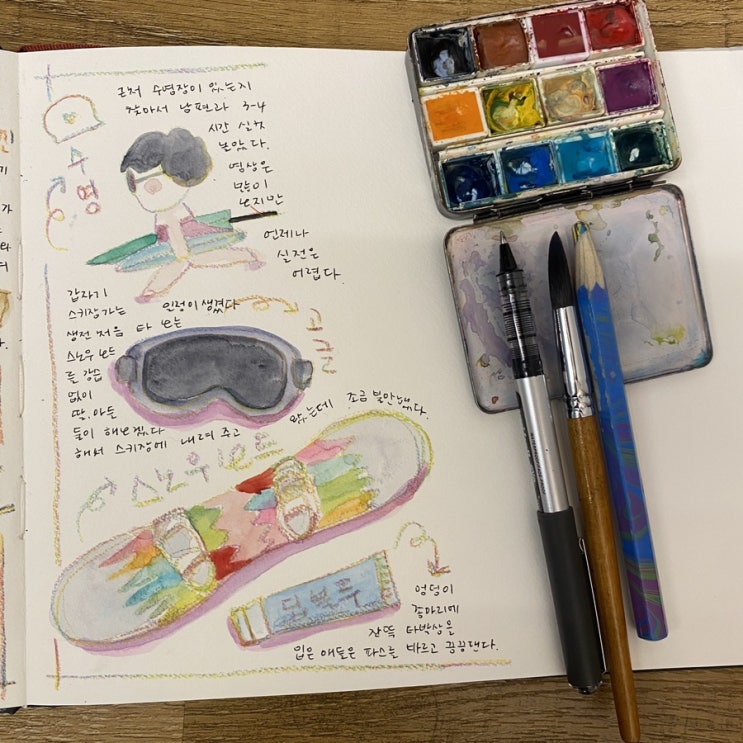 근처 수영장이 있는지
찾아서 남편과 3-4
시간 실컷
놀았다.
영상은
많이
보지만
언제나
실전은
어렵다.
수영
갑자기
스키장가는 인원이 생겼다
생전 처음 타 보는
스노우 보드
를 강습
없이
딸, 아들
들이 해보겠다
해서 스키장에 내려 주고 왔는데 조금 불안했다.
고글
스노우보드
엉덩이
종아리에
잔뜩 타박상을
입은 애들은 파스를 바르고 끙끙댄다.